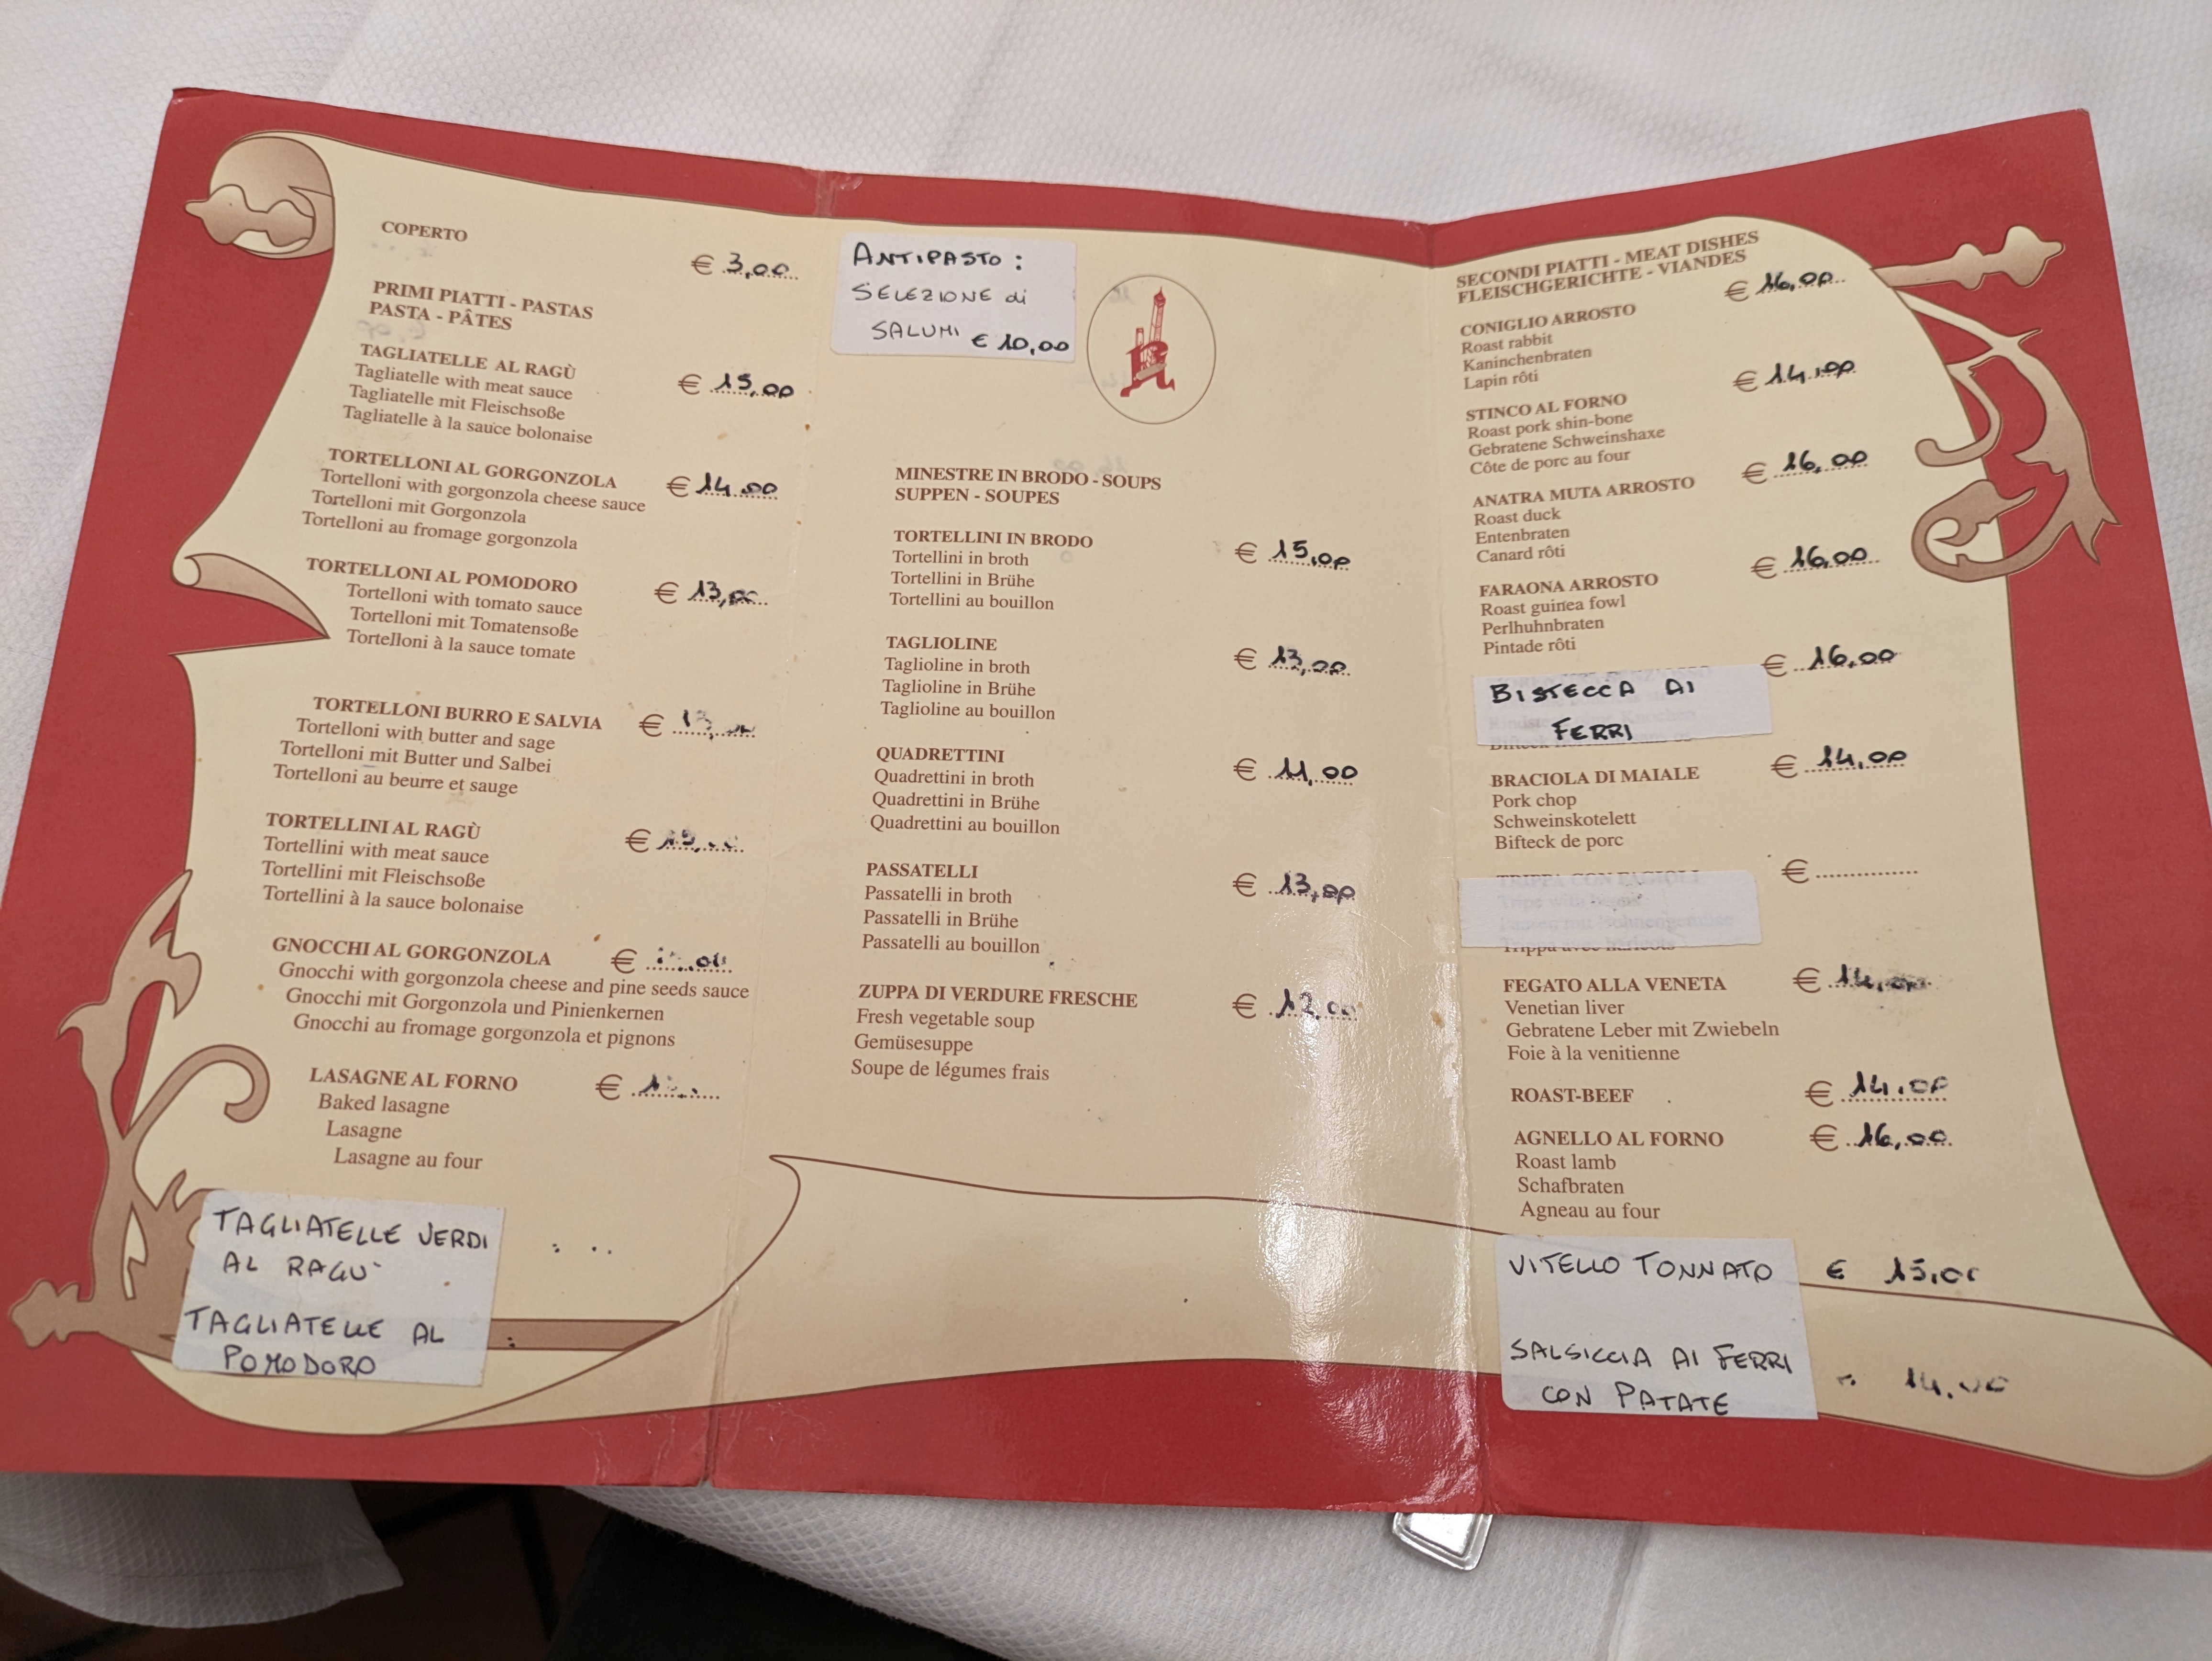 COPERTO
€ 3,00
PRIMI PIATTI - PASTAS
PASTA - PÂTES
TAGLIATELLE AL RAGÙ
€ 15,00
Tagliatelle with meat sauce
Tagliatelle mit Fleischsoße
Tagliatelle à la sauce bolonaise
TORTELLONI AL GORGONZOLA
€ 14,00
Tortelloni with gorgonzola cheese sauce
Tortelloni mit Gorgonzola
Tortelloni au fromage gorgonzola
TORTELLONI AL POMODORO
€ 13,00
Tortelloni with tomato sauce
Tortelloni mit Tomatensoße
Tortelloni à la sauce tomate
TORTELLONI BURRO E SALVIA
€
Tortelloni with butter and sage
Tortelloni mit Butter und Salbei
Tortelloni au beurre et sauge
TORTELLINI AL RAGÙ
€
Tortellini with meat sauce
Tortellini mit Fleischsoße
Tortellini à la sauce bolonaise
GNOCCHI AL GORGONZOLA
€
Gnocchi with gorgonzola cheese and pine seeds sauce
Gnocchi mit Gorgonzola und Pinienkernen
Gnocchi au fromage gorgonzola et pignons
LASAGNE AL FORNO
€
Baked lasagne
Lasagne
Lasagne au four
TAGLIATELLE VERDI
AL RAGU'
TAGLIATELLE AL
POMODORO
ANTIPASTO:
SELEZIONE di
SALUMI € 10,00
MINESTRE IN BRODO - SOUPS
SUPPEN - SOUPES
TORTELLINI IN BRODO
€ 15,00
Tortellini in broth
Tortellini in Brühe
Tortellini au bouillon
TAGLIOLINE
€ 13,00
Taglioline in broth
Taglioline in Brühe
Taglioline au bouillon
QUADRETTINI
€ 11,00
Quadrettini in broth
Quadrettini in Brühe
Quadrettini au bouillon
PASSATELLI
€ 13,00
Passatelli in broth
Passatelli in Brühe
Passatelli au bouillon
ZUPPA DI VERDURE FRESCHE
€ 12,00
Fresh vegetable soup
Gemüsesuppe
Soupe de légumes frais
SECONDI PIATTI - MEAT DISHES
FLEISCHGERICHTE - VIANDES
€ 16,00
CONIGLIO ARROSTO
Roast rabbit
Kaninchenbraten
Lapin rôti
€ 14,00
STINCO AL FORNO
Roast pork shin-bone
Gebratene Schweinshaxe
Côte de porc au four
€ 16,00
ANATRA MUTA ARROSTO
Roast duck
Entenbraten
Canard rôti
€ 16,00
FARAONA ARROSTO
Roast guinea fowl
Perlhuhnbraten
Pintade rôti
€ 16,00
BISTECCA AI
FERRI
€ 14,00
BRACIOLA DI MAIALE
Pork chop
Schweinskotelett
Bifteck de porc
€
TRIPPA CON FAGIOLI
FEGATO ALLA VENETA
€ 14,00
Venetian liver
Gebratene Leber mit Zwiebeln
Foie à la venitienne
ROAST-BEEF
€ 14,00
AGNELLO AL FORNO
€ 16,00
Roast lamb
Schafbraten
Agneau au four
VITELLO TONNATO € 15,00
SALSICCIA AI FERRI
CON PATATE
14,00